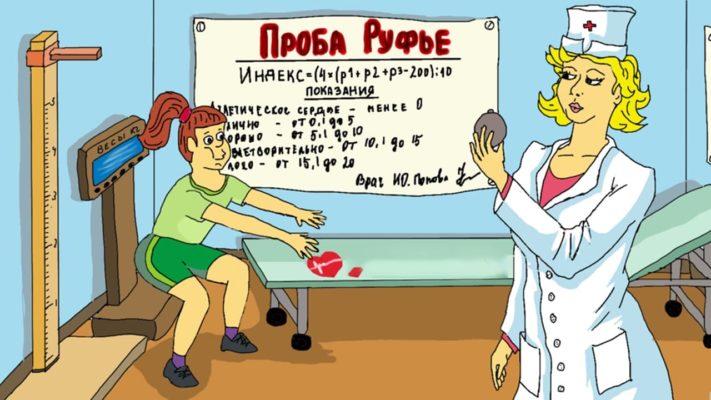 ПРОБА РУФЬЕ
ИНДЕКС=(4×(P1+P2+P3-200):10
ПОКАЗАНИЯ
ЛЕТИЧЕСКОЕ СЕРДЦЕ - МЕНЕЕ 0
ЛИЧНО - ОТ 0,1 до 5
ОРОШО - ОТ 5,1 до 10
ВЛЕТВОРИТЕЛЬНО - ОТ 10,1 до 15
ЛОХО - ОТ 15,1 до 20
Врач И.Ю. Попова
ВЕСЫ К2
5
4
3
2
1